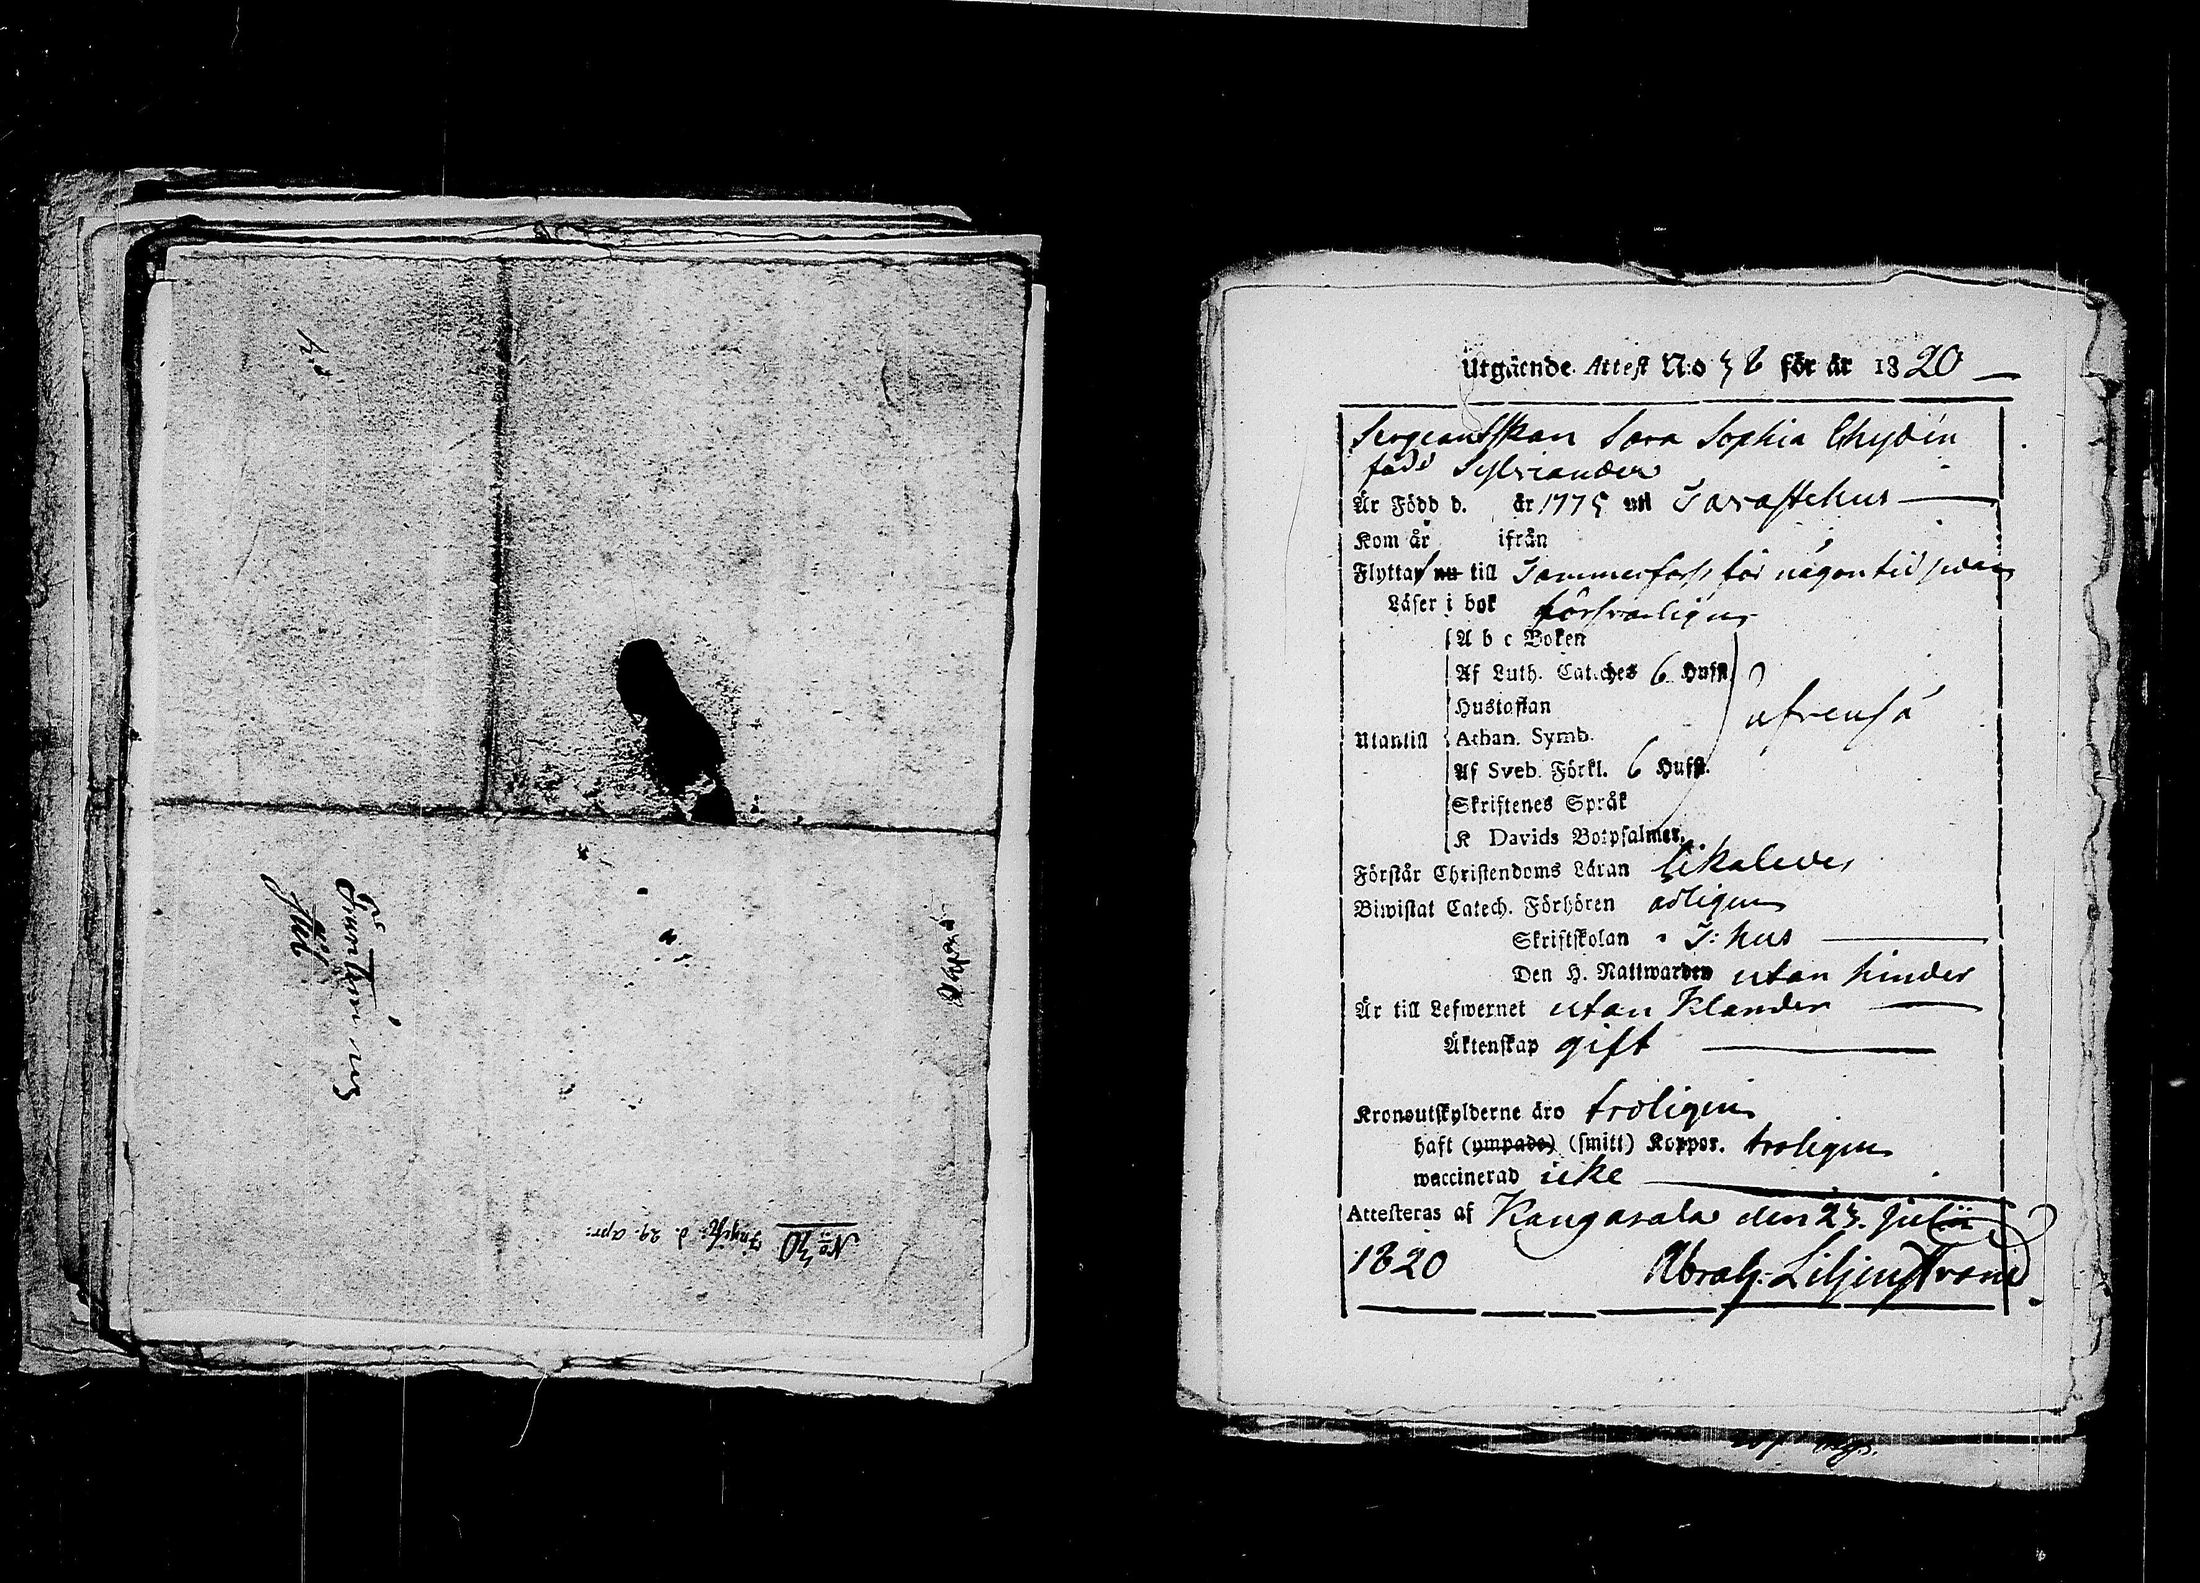 No 30
Ingifv: d. 29. apr:
Utgående Attest N:o 36 för år 1820
Sergeantskan Sara Sophia Chydén
född Sylviander
Är Född d. år 1775 uti Tavastehus
Kom år ifrån
Flyttar nu till Tammerfors för någon tid sedan
Läser i bok försvarligen
A b c Boken
Af Luth. Catches 6 Hufst.
Hustaflan
Utantill Athan. Symb.
Af Sveb. Förkl. 6 Hufst.
Skriftenes Språk
K Davids Botpsalmer.
Förstår Christendoms Läran likaledes
Biwistat Catech. Förhören
Skriftskolan i T: hus
Den H. Nattwarden utan hinder
Är till Lefwernet utan Klander
Äktenskap gift
Kronoutskylderne äro troligen
haft (ympade) (smitt) Koppor. troligen
waccinerad icke
Attesteras af Kangasala den 23. Julii
1820 Abrah. Liljenstrand